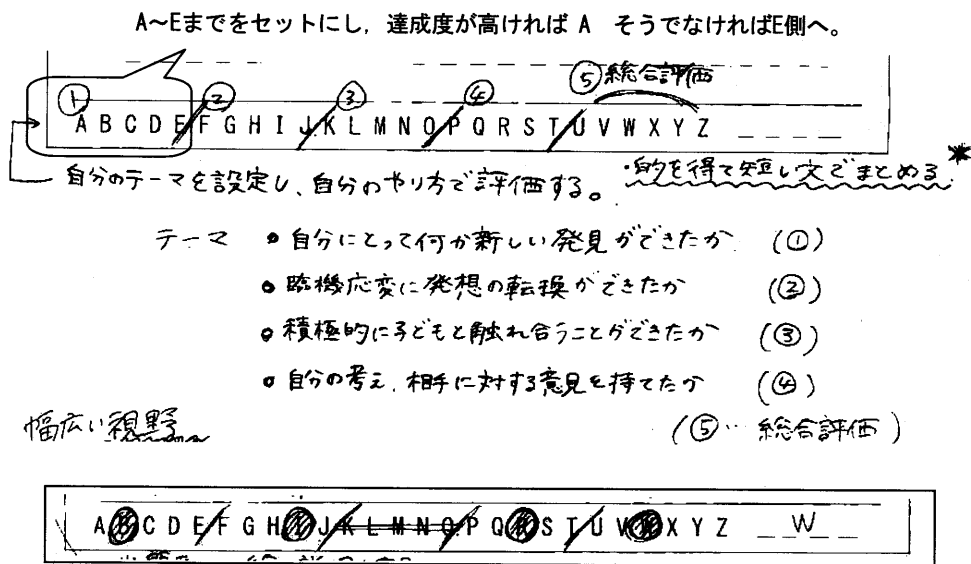 A～Eまでをセットにし，達成度が高ければ A そうでなければE側へ。
① ② ③ ④ ⑤ 総合評価
A B C D E F G H I J K L M N O P Q R S T U V W X Y Z
自分のテーマを設定し、自分のやり方で評価する。 ・的を得て短い文でまとめる *
テーマ ・自分にとって何か新しい発見ができたか (①)
・臨機応変に発想の転換ができたか (②)
・積極的に子どもと触れ合うことができたか (③)
・自分の考え、相手に対する意見を持てたか (④)
幅広い視野 (⑤… 総合評価)
A B C D E F G H I J K L M N O P Q R S T U V W X Y Z W